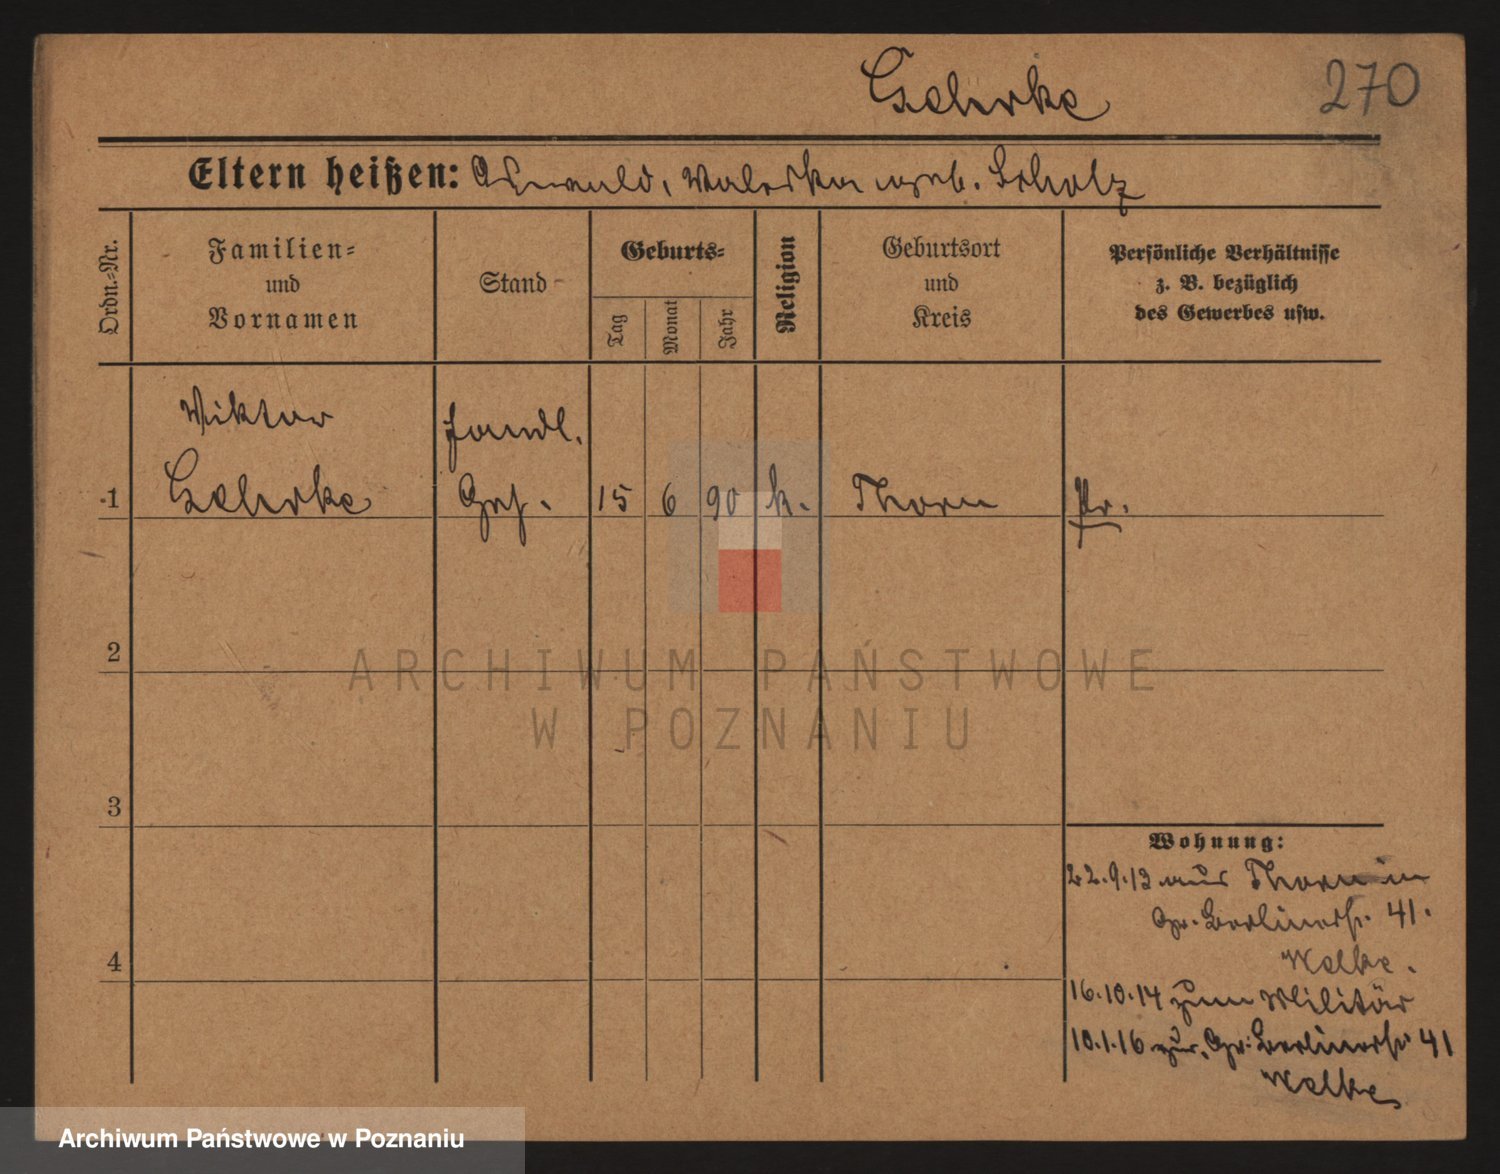 Gehrke
270
Eltern heißen: Oswald, Waleska geb. Scholz
Ordn.=Nr.
Familien=
und
Vornamen
Stand
Geburts=
Tag
Monat
Jahr
Religion
Geburtsort
und
Kreis
Persönliche Verhältnisse
z. B. bezüglich
des Gewerbes usw.
Viktor
Handl.
1 Gehrke Geh. 15 6 90 k. Thorn Pr.
2
3
4
Wohnung:
22.9.13 aus Thorn in
Gr. Berlinerstr. 41.
16.10.14 zum Militär
10.1.16 zur. Gr. Berlinerstr 41
ARCHIWUM PAŃSTWOWE
W POZNANIU
Archiwum Państwowe w Poznaniu